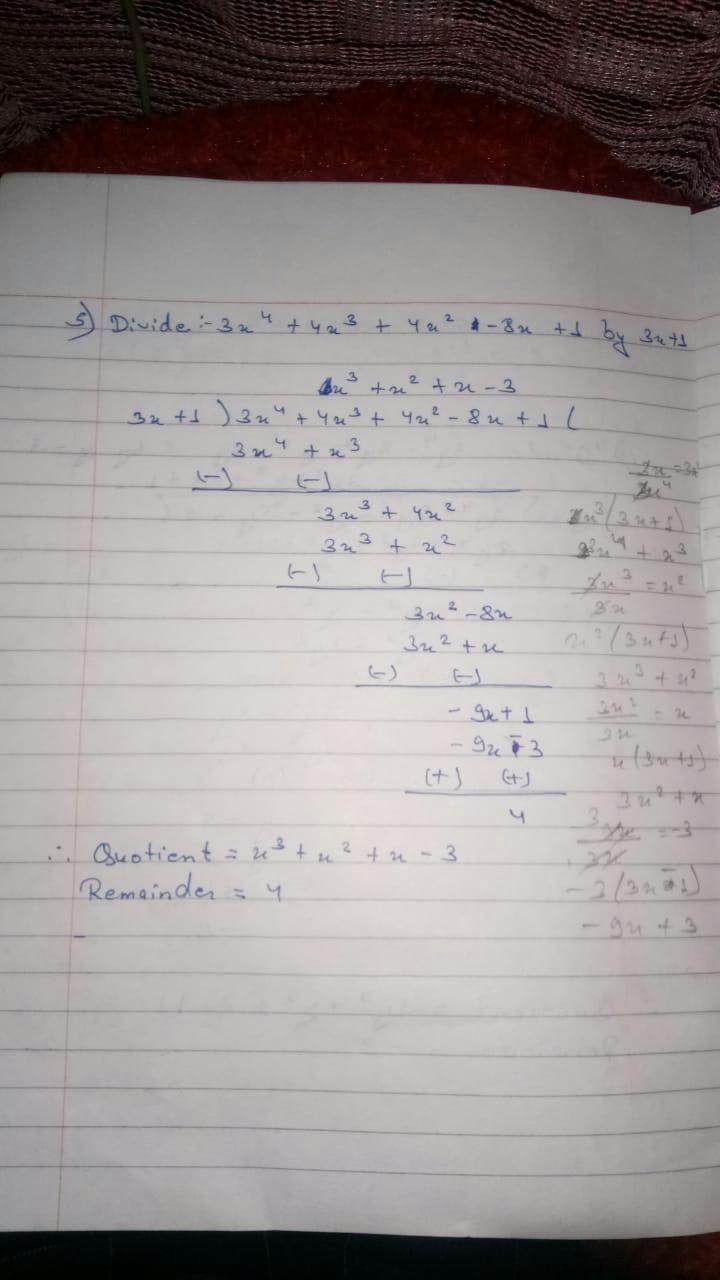 5) Divide :- 3x⁴ + 4x³ + 4x² - 8x + 1 by 3x+1
x³ + x² + x - 3
3x + 1 ) 3x⁴ + 4x³ + 4x² - 8x + 1 (
3x⁴ + x³
(-) (-)
3x³ + 4x²
3x³ + x²
(-) (-)
3x² - 8x
3x² + x
(-) (-)
- 9x + 1
- 9x - 3
(+) (+)
4
∴ Quotient = x³ + x² + x - 3
Remainder = 4
x³(3x+1)
+ x³
= x²
x²(3x+1)
3x³ + x²
3x²
3x
= x
x(3x+1)
3x² + x
= -3
-3(3x-1)
- 9x + 3